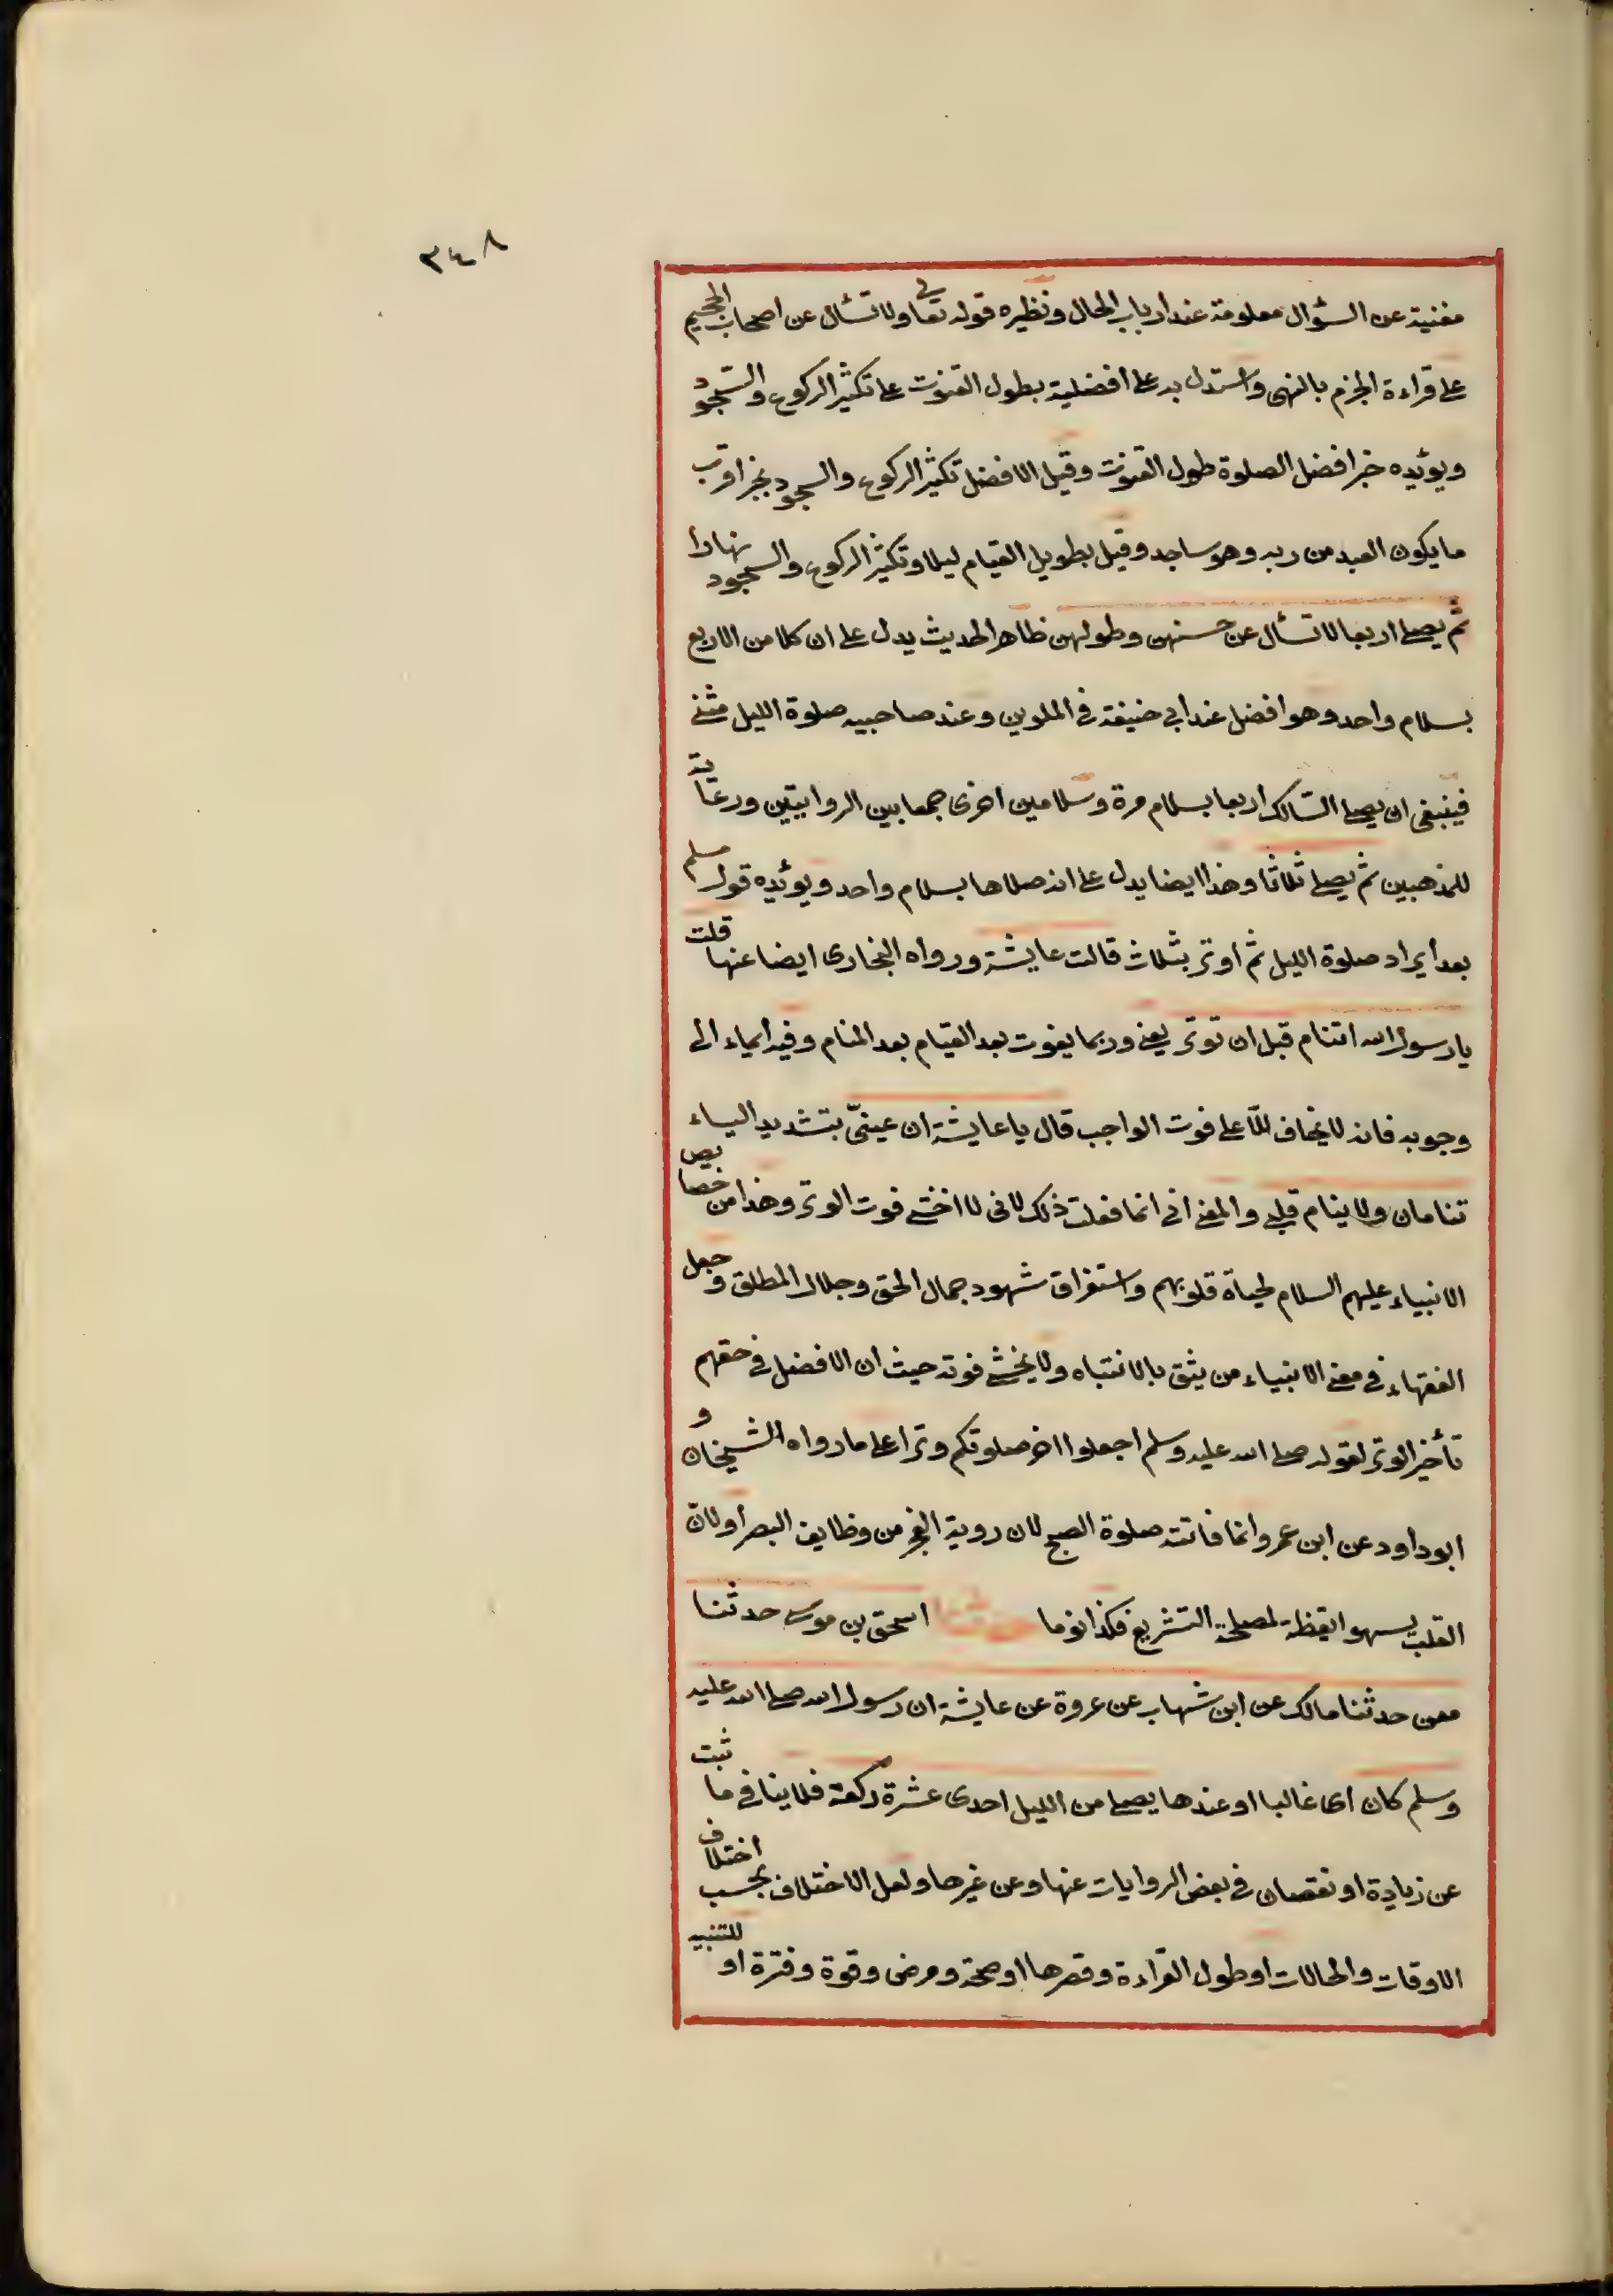 ٣٤٨
مغنية عن السؤال معلومة عند ارباب الحال ونظيره قوله تعالى ولا تسأل عن اصحاب الجحيم
على قراءة الجزم بالنهى واستدل به على افضلية بطول القنوت على تكثير الركوع والسجود
ويؤيده خبر افضل الصلوة طول القنوت وقيل الافضل تكثير الركوع والسجود بخبر اقرب
ما يكون العبد من ربه وهو ساجد وقيل بطويل القيام ليلا وتكثير الركوع والسجود نهارا
ثم يصلى اربعا لا تسأل عن حسنهن وطولهن ظاهر الحديث يدل على ان كلا من الاربع
بسلام واحد وهو افضل عند ابي حنيفة في الملوين وعند صاحبيه صلوة الليل مثنى
فينبغى ان يصلى السالك اربعا بسلام مرة وسلامين اخرى جمعا بين الروايتين ورعاية
للمذهبين ثم يصلى ثلاثا وهذا ايضا يدل على انه صلاها بسلام واحد ويؤيده قول مسلم
بعد أيراد صلوة الليل ثم اوتر بثلاث قالت عايشة ورواه البخارى ايضا عنها قلت
يا رسول الله اتنام قبل ان توتر يعنى وربما يفوت بعد القيام بعد المنام وفيه أيماء الى
وجوبه فانه لا يخاف الّا على فوت الواجب قال يا عايشة ان عينىّ بتشديد الياء
تنامان ولا ينام قلبى والمعنى انى انما فعلت ذلك لانى لا اخشى فوت الوتر وهذا من خصايص
الانبياء عليهم السلام لحياة قلوبهم واستغراق شهود جمال الحق وجلال المطلق وجعل
الفقهاء في معنى الانبياء من يثق بالانتباه ولا يخشى فوته حيث ان الافضل في حقهم
تأخير الوتر لقوله صلى الله عليه وسلم اجعلوا اخر صلوتكم وترا على ما رواه الشيخان و
ابو داود عن ابن عمر وانما فاتته صلوة الصبح لان روية الفجر من وظايف البصر أو لانّ
القلب يسهو ايقظة لمصلحة التشريع فكذا نوما حدثنا اسحق بن موسى حدثنا
معن حدثنا مالك عن ابن شهاب عن عروة عن عايشة ان رسول الله صلى الله عليه
وسلم كان اى غالبا او عندها يصلى من الليل احدى عشرة ركعة فلا ينافي ما ثبت
عن زيادة او نقصان في بعض الروايات عنها وعن غيرها ولعل الاختلاف بحسب اختلاف
الاوقات والحالات او طول القراءة وقصرها او صحة ومرض وقوة وفترة او للتنبيه